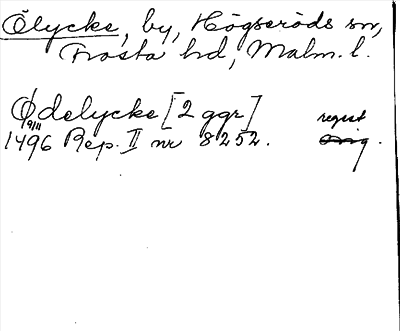 Ölycke, by, Högseröds sn,
Frosta hd, Malm. l.
Ødelycke [2 ggr]
1496 9/11 Rep. II nr 8252. regest
orig.